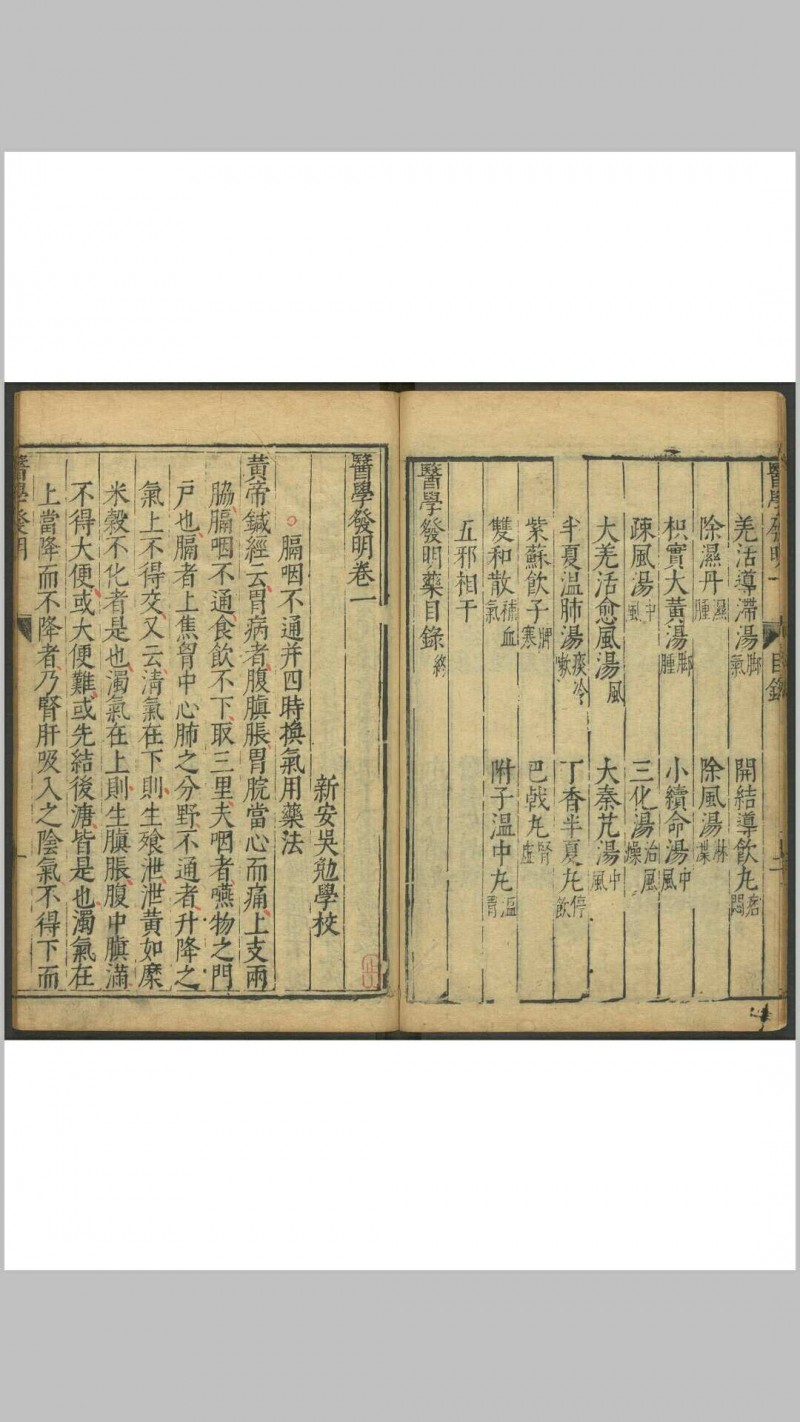 醫學發明 目錄
羌活導滯湯脚氣 開結導飲丸痞悶
除濕丹濕腫 除風湯
枳實大黃湯脚腫 小續命湯中風
疎風湯中風 三化湯治風燥
大羌活愈風湯風 大秦芃湯中風
半夏溫肺湯痰冷嗽 丁香半夏丸停飲
紫蘇飲子脾寒 巴戟丸腎虛
雙和散補血氣 附子溫中丸溫胃
五邪相干
醫學發明藥目錄終
醫學發明卷一
新安吳勉學校
膈咽不通并四時換氣用藥法
黃帝鍼經云胃病者腹䐜脹胃脘當心而痛上支兩
脇膈咽不通食飲不下取三里夫咽者嚥物之門
戶也膈者上焦胷中心肺之分野不通者升降之
氣上不得交又云淸氣在下則生飧泄泄黃如糜
米穀不化者是也濁氣在上則生䐜脹腹中䐜滿
不得大便或大便難或先結後溏皆是也濁氣在
上當降而不降者乃腎肝吸入之陰氣不得下而
醫學發明 一